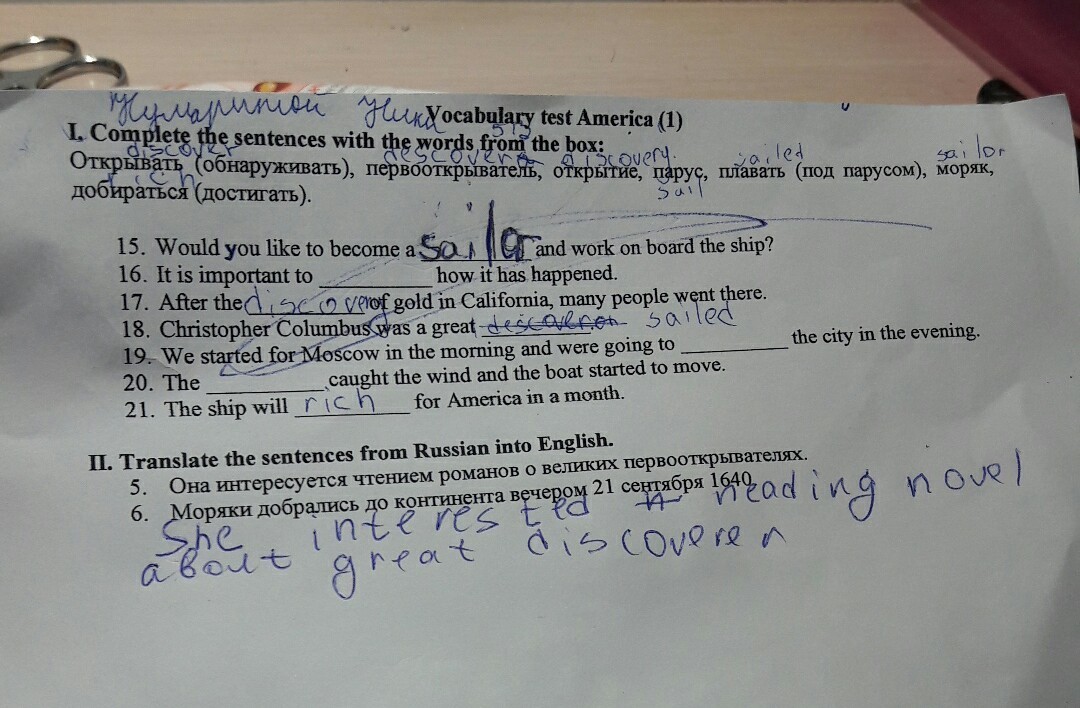 Vocabulary test America (1)
5Б
I. Complete the sentences with the words from the box:
discover descoveren discovery. sailed sailor
Открывать (обнаруживать), первооткрыватель, открытие, парус, плавать (под парусом), моряк,
rich sail
добираться (достигать).
15. Would you like to become a sailor and work on board the ship?
16. It is important to ________ how it has happened.
17. After the discovery of gold in California, many people went there.
18. Christopher Columbus was a great sailed
19. We started for Moscow in the morning and were going to ________ the city in the evening.
20. The ________ caught the wind and the boat started to move.
21. The ship will rich for America in a month.
II. Translate the sentences from Russian into English.
5. Она интересуется чтением романов о великих первооткрывателях.
6. Моряки добрались до континента вечером 21 сентября 1640.
She interested reading novel
about great discoveren